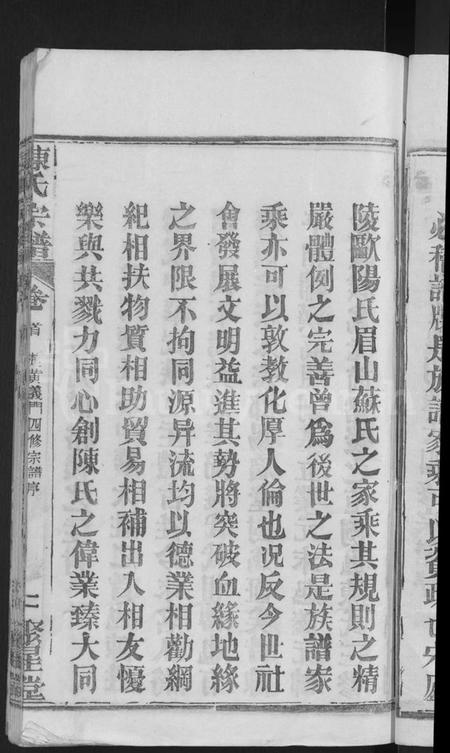 陵歐陽氏眉山蘇氏之家乘其規則之精
嚴體例之完善曾為後世之法是族譜家
乘亦可以敦教化厚人倫也况反今世社
會發展文明益進其勢將突破血緣地緣
之界限不拘同源异流均以德業相勸綱
紀相扶物質相助貿易相補出入相友憂
樂與共戮力同心創陳氏之偉業臻大同
陳氏宗譜
卷首
黃義門四修宗譜序
二
聚星堂